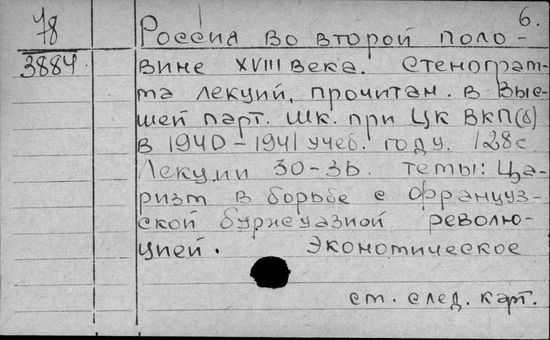 6.
78
3884
Россия во второй поло-
вине XVIII века. Стенограм-
ма лекций, прочитан. в Выс-
шей парт. шк. при ЦК ВКП(б)
в 1940-1941 учеб. году. 128с
Лекции 30-36. темы: Ца-
ризм в борьбе с француз-
ской буржуазной револю-
цией. Экономическое
см. след. карт.